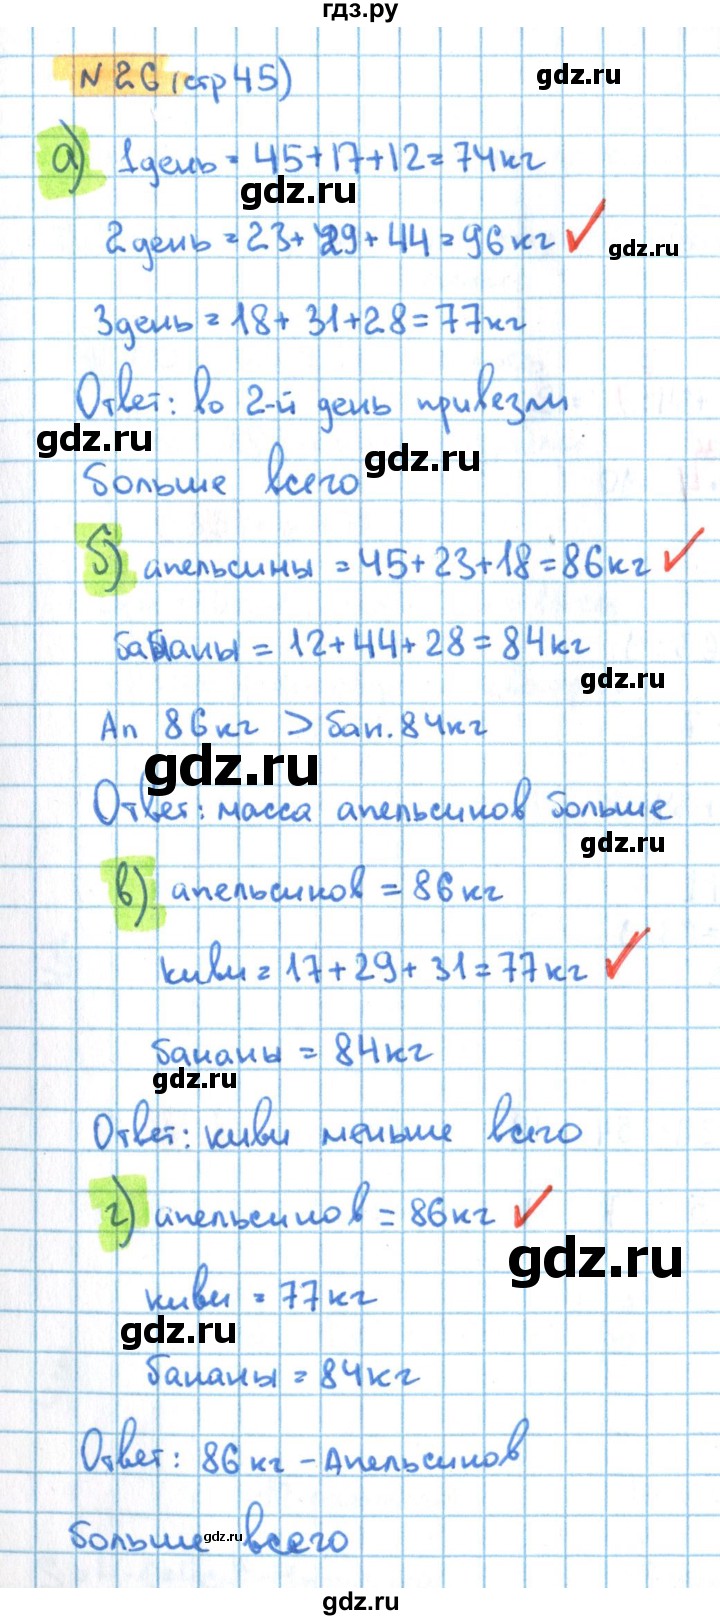 гдз.ру
№ 26 (стр 45)
gdz.ru
а) 1 день = 45+17+12=74кг
gdz.ru
2 день = 23+ 29+ 44 = 96 кг ✓
gdz.ru
3 день = 18+ 31+28=77кг
Ответ: во 2-й день привезли
gdz.ru
gdz.ru
больше всего
б) апельсины = 45+23+18=86кг ✓
бананы = 12+44+28=84кг
gdz.ru
Ап 86кг > бан. 84кг
gdz.ru
Ответ: масса апельсинов больше
gdz.ru
в) апельсинов = 86кг
киви = 17+29+31=77кг ✓
бананы = 84кг
gdz.ru
Ответ: киви меньше всего
г) апельсинов = 86кг ✓
gdz.ru
киви = 77кг
gdz.ru
бананы = 84кг
Ответ: 86кг - Апельсинов
gdz.ru
больше всего
gdz.ru